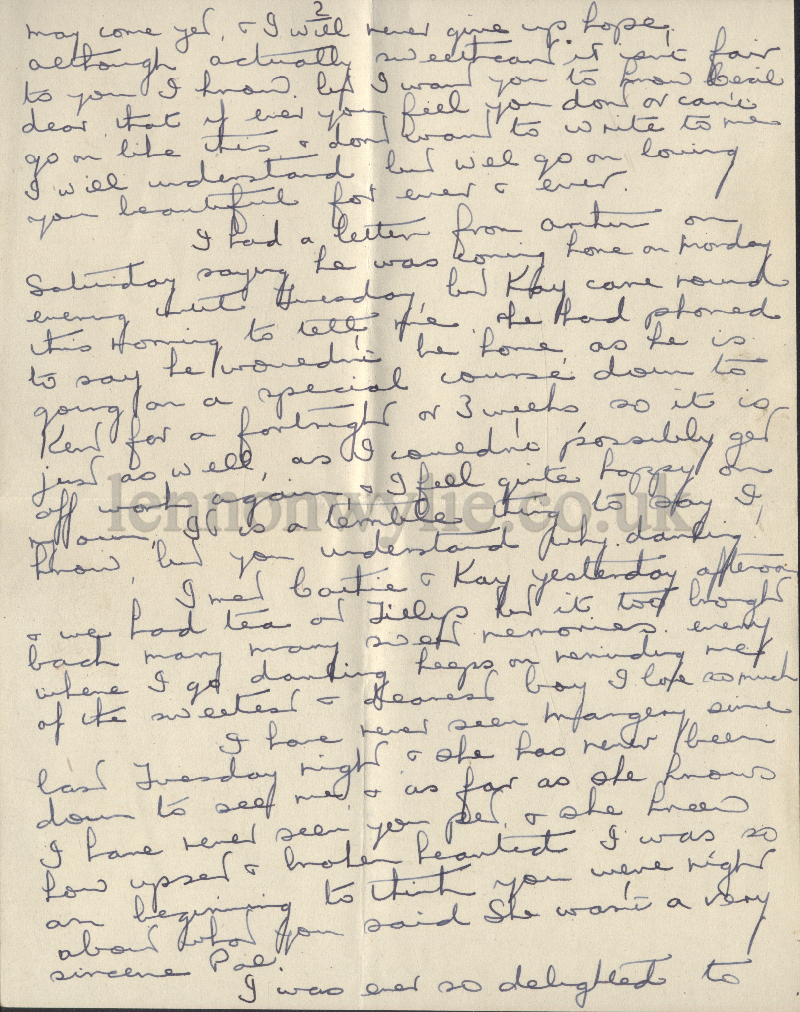 2
may come yet, & I will never give up hope,
although actually sweetheart it isn't fair
to you I know. but I want you to know Cecil
dear that if ever you feel you dont or can't
go on like this, & dont want to write to me
I will understand but will go on loving
you beautiful for ever & ever.
I had a letter from on
Saturday saying he was coming home on Monday
evening until Tuesday, but Kay came round
this morning to tell me she had phoned
to say he wouldn't be home as he is
going on a special course down to
Kent for a fortnight or 3 weeks so it is
just as well, as I couldn't possibly get
off work again, & I feel quite happy on
my own, It is a terrible thing to say I
know, but you understand why darling.
lennonwylie.co.uk
I met & Kay yesterday afternoon
& we had tea at but it too brought
back many many sweet memories. every
where I go darling keeps on reminding me
of the sweetest & dearest boy I love so much
I have never seen Margery since
last Tuesday night & she has never been
down to see me, & as far as she knows
I have never seen you yet, & she knew
how upset & broken hearted I was so
am beginning to think you were right
about what you said She wasn't a very
sincere Pal.
I was ever so delighted to